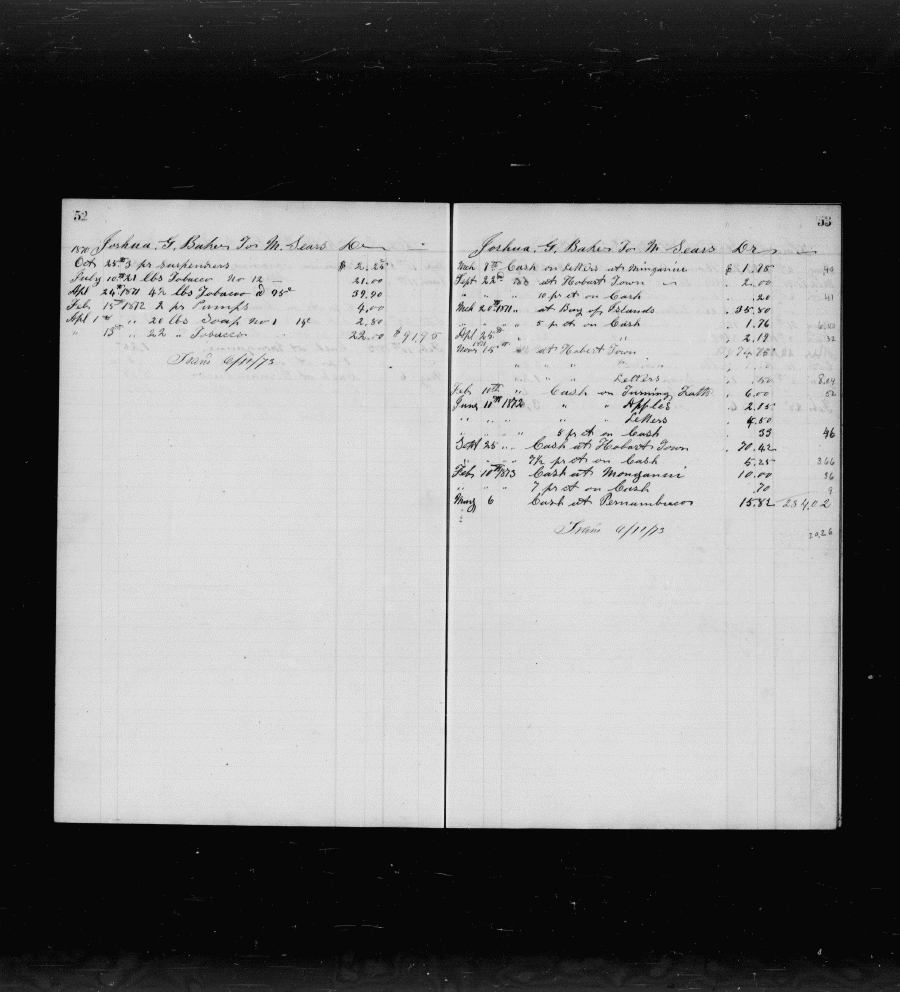 52
1870 Joshua. G. Baker To M. Sears Dr
Oct 25th 3 pr suspenders $ 2.25
July 10th 21 lbs Tobacco No 12 21.00
Apl 24th 1871 42 lbs Tobacco @ 95c 39.90
Feb 15th 1872 2 pr Pumps 4.00
Apl 1st " " 20 lbs Soap No 1 14c 2.80
" 15th " 22 " Tobacco 22.00 $ 91.95
Trans 6/11/73
53
Joshua. G. Baker To M Sears Dr
Mch 8th Cash on Letters at Monganui $ 1.15 .90
Sept 22nd at Hobart Town 2.00
" " " 10 pr ct on Cash .20 41
Mch 20th 1871 " at Bay of Islands 35.50
" " " 5 pr ct on Cash 1.76
Apl 25th " " 2.19 32
Nov 15th " at Hobart Town 74.75
" " "
" " " Letters 8.04
Feb 10th " Cash on Turning Lath 6.00 52
June 11th 1872 " " Apples 2.15
" " " " " Letters 4.50
" " " 8 pr ct on Cash 33 46
Sept 25 " " Cash at Hobart Town 70.42
" " " 7½ pr ct on Cash 5.25 366
Feb 10th 1873 Cash at Monganui 10.00 36
" " " 7 pr ct on Cash .70 9
May 6 Cash at Pernambuco 15.82 234.02
Trans 6/11/73 20.26